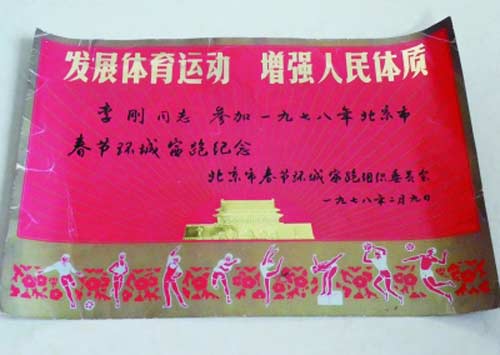 发展体育运动 增强人民体质
李刚同志 参加一九七八年北京市
春节环城赛跑纪念
北京市春节环城赛跑组织委员会
一九七八年二月九日